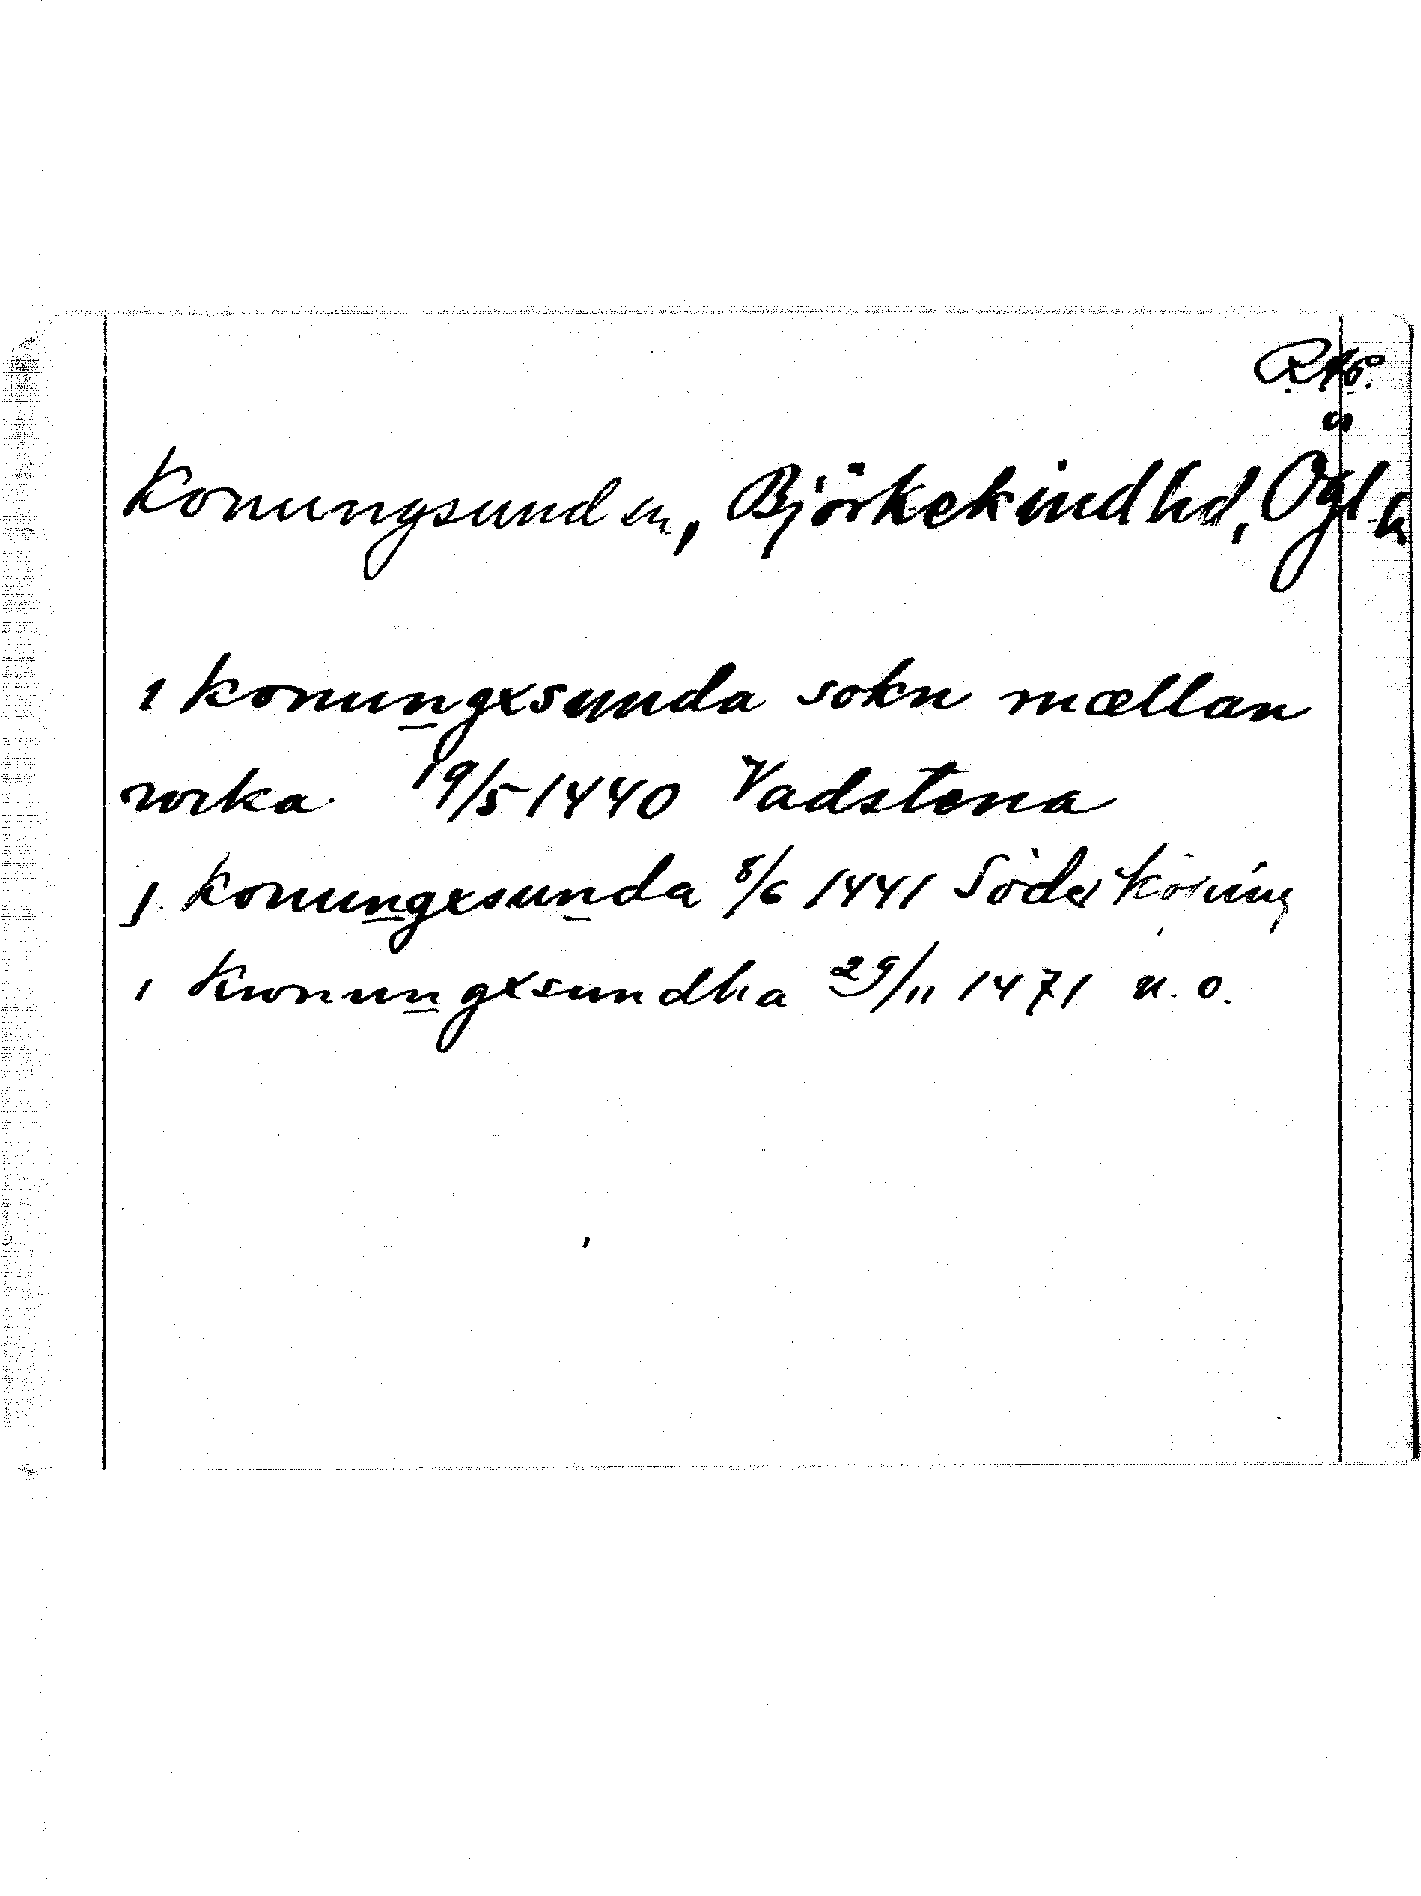 RAp.
Konungsund sn, Björkekind hd, Ögl
i konungxsunda sokn mællan
wika 19/5 1440 Vadstena
j konungxsunda 8/6 1441 Söderköping
i kwnungxsundha 29/11 1471 u.o.